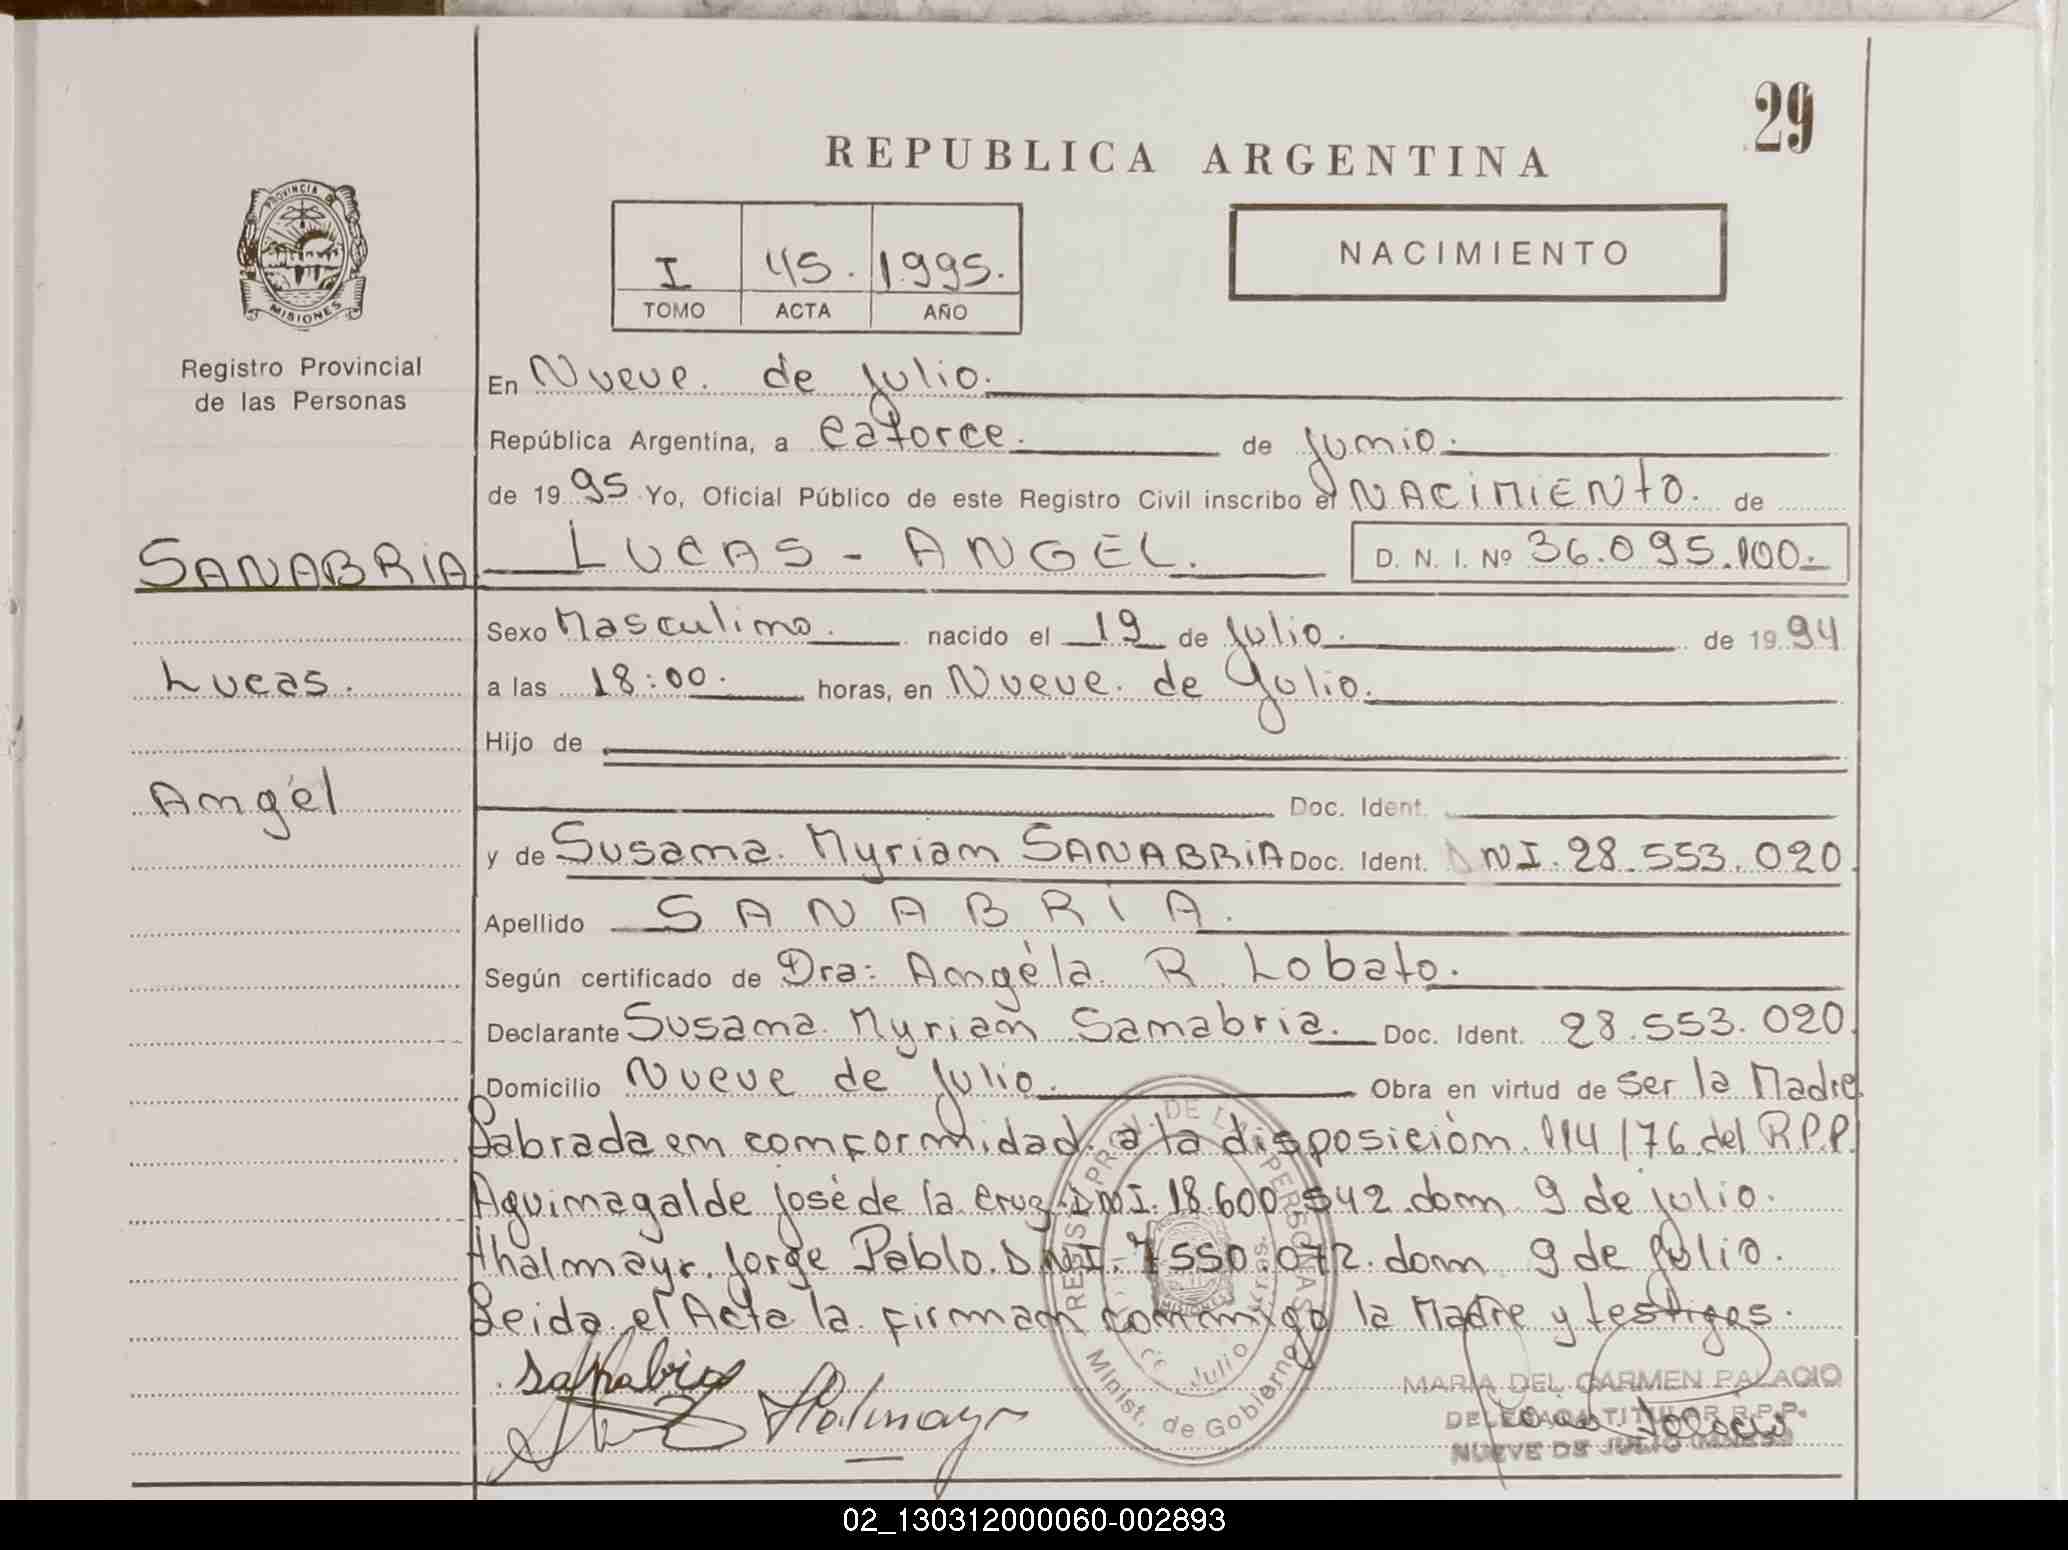 29
REPUBLICA ARGENTINA
PROVINCIA DE
MISIONES
I 45. 1.995.
TOMO ACTA AÑO
NACIMIENTO
Registro Provincial
de las Personas
En Nueve. de Julio.
República Argentina, a catorce. de Junio.
de 1995 Yo, Oficial Público de este Registro Civil inscribo el NACIMIENTO. de
SANABRIA LUCAS - ANGEL. D. N. I. Nº 36.095.100.
Sexo Masculino. nacido el 19 de Julio. de 1994
Lucas. a las 18:00. horas, en Nueve. de Julio.
Hijo de
Angél Doc. Ident.
y de Susana. Myriam SANABRIA Doc. Ident. DNI. 28.553.020
Apellido SANABRIA.
Según certificado de Dra: Angéla. R. Lobato.
Declarante Susana. Myriam Sanabria. Doc. Ident. 28.553.020.
Domicilio Nueve de Julio. Obra en virtud de Ser la Madre
Labrada en conformidad. a la disposición. 114/76 del R.P.P.
Aguinagalde José de la Cruz. DNI. 18.600.542. dom. 9 de julio.
Thalmayr. Jorge Pablo. DNI. 7550.072. dom 9 de Julio.
Leida el Acta la firman conmigo la Madre y testigos.
Sanabria
Thalmayr
MARIA DEL CARMEN PALACIO
DELEGADA TITULAR R.P.P.
NUEVE DE JULIO (MNES)
Minist. de Gobierno
02_130312000060-002893